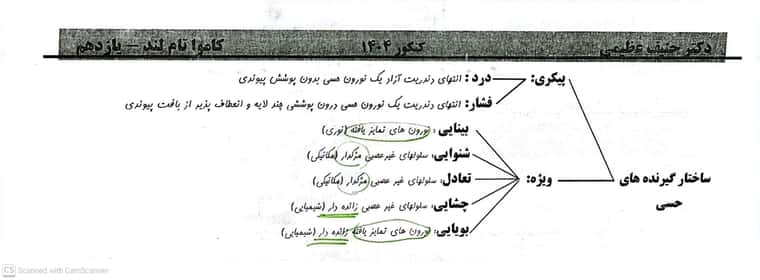 دکتر حنیف عظیمی کنکور ۱۴۰۴ کاموا تام لند – یازدهم
ساختار گیرنده های حسی
پیکری:
درد: انتهای دندریت آزاد یک نورون حسی بدون پوشش پیوندی
فشار: انتهای دندریت یک نورون حسی درون پوششی چند لایه و انعطاف پذیر از بافت پیوندی
ویژه:
بینایی: نورون های تمایز یافته (نوری)
شنوایی: سلولهای غیرعصبی مژکدار (مکانیکی)
تعادل: سلولهای غیر عصبی مژکدار (مکانیکی)
چشایی: سلولهای غیر عصبی زائده دار (شیمیایی)
بویایی: نورون های تمایز یافته زائده دار (شیمیایی)
CS Scanned with CamScanner